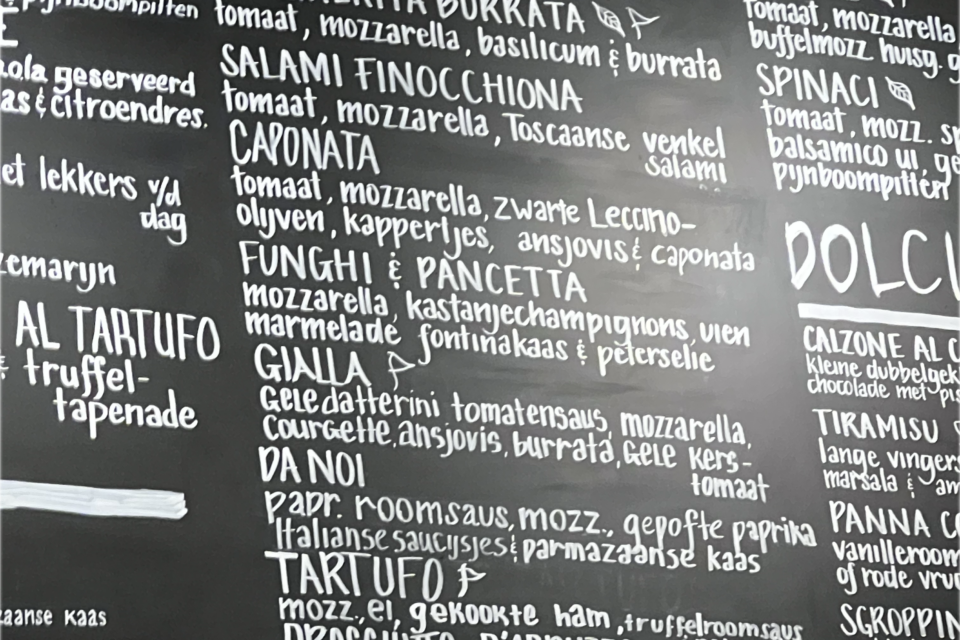 pijnboompitten
geserveerd
as & citroendres.
lekkers v/d
dag
AL TARTUFO
truffel-
tapenade
kaas
BURRATA
tomaat, mozzarella, basilicum & burrata
SALAMI FINOCCHIONA
tomaat, mozzarella, Toscaanse venkel
salami
CAPONATA
tomaat, mozzarella, zwarte Leccino-
olijven, kappertjes, ansjovis & caponata
FUNGHI & PANCETTA
mozzarella, kastanjechampignons, uien
marmelade fontinakaas & peterselie
GIALLA
Gele datterini tomatensaus, mozzarella,
courgette, ansjovis, burrata, Gele kers-
tomaat
DA NOI
papr. roomsaus, mozz., gepofte paprika
Italianse saucijsjes & parmazaanse kaas
TARTUFO
mozz., ei, gekookte ham, truffelroomsaus
tomaat, mozzarella
buffelmozz. huisg.
SPINACI
tomaat, mozz.
balsamico ui,
pijnboompitten
DOLCI
CALZONE AL
kleine
chocolade met
TIRAMISU
lange
marsala &
PANNA
of rode